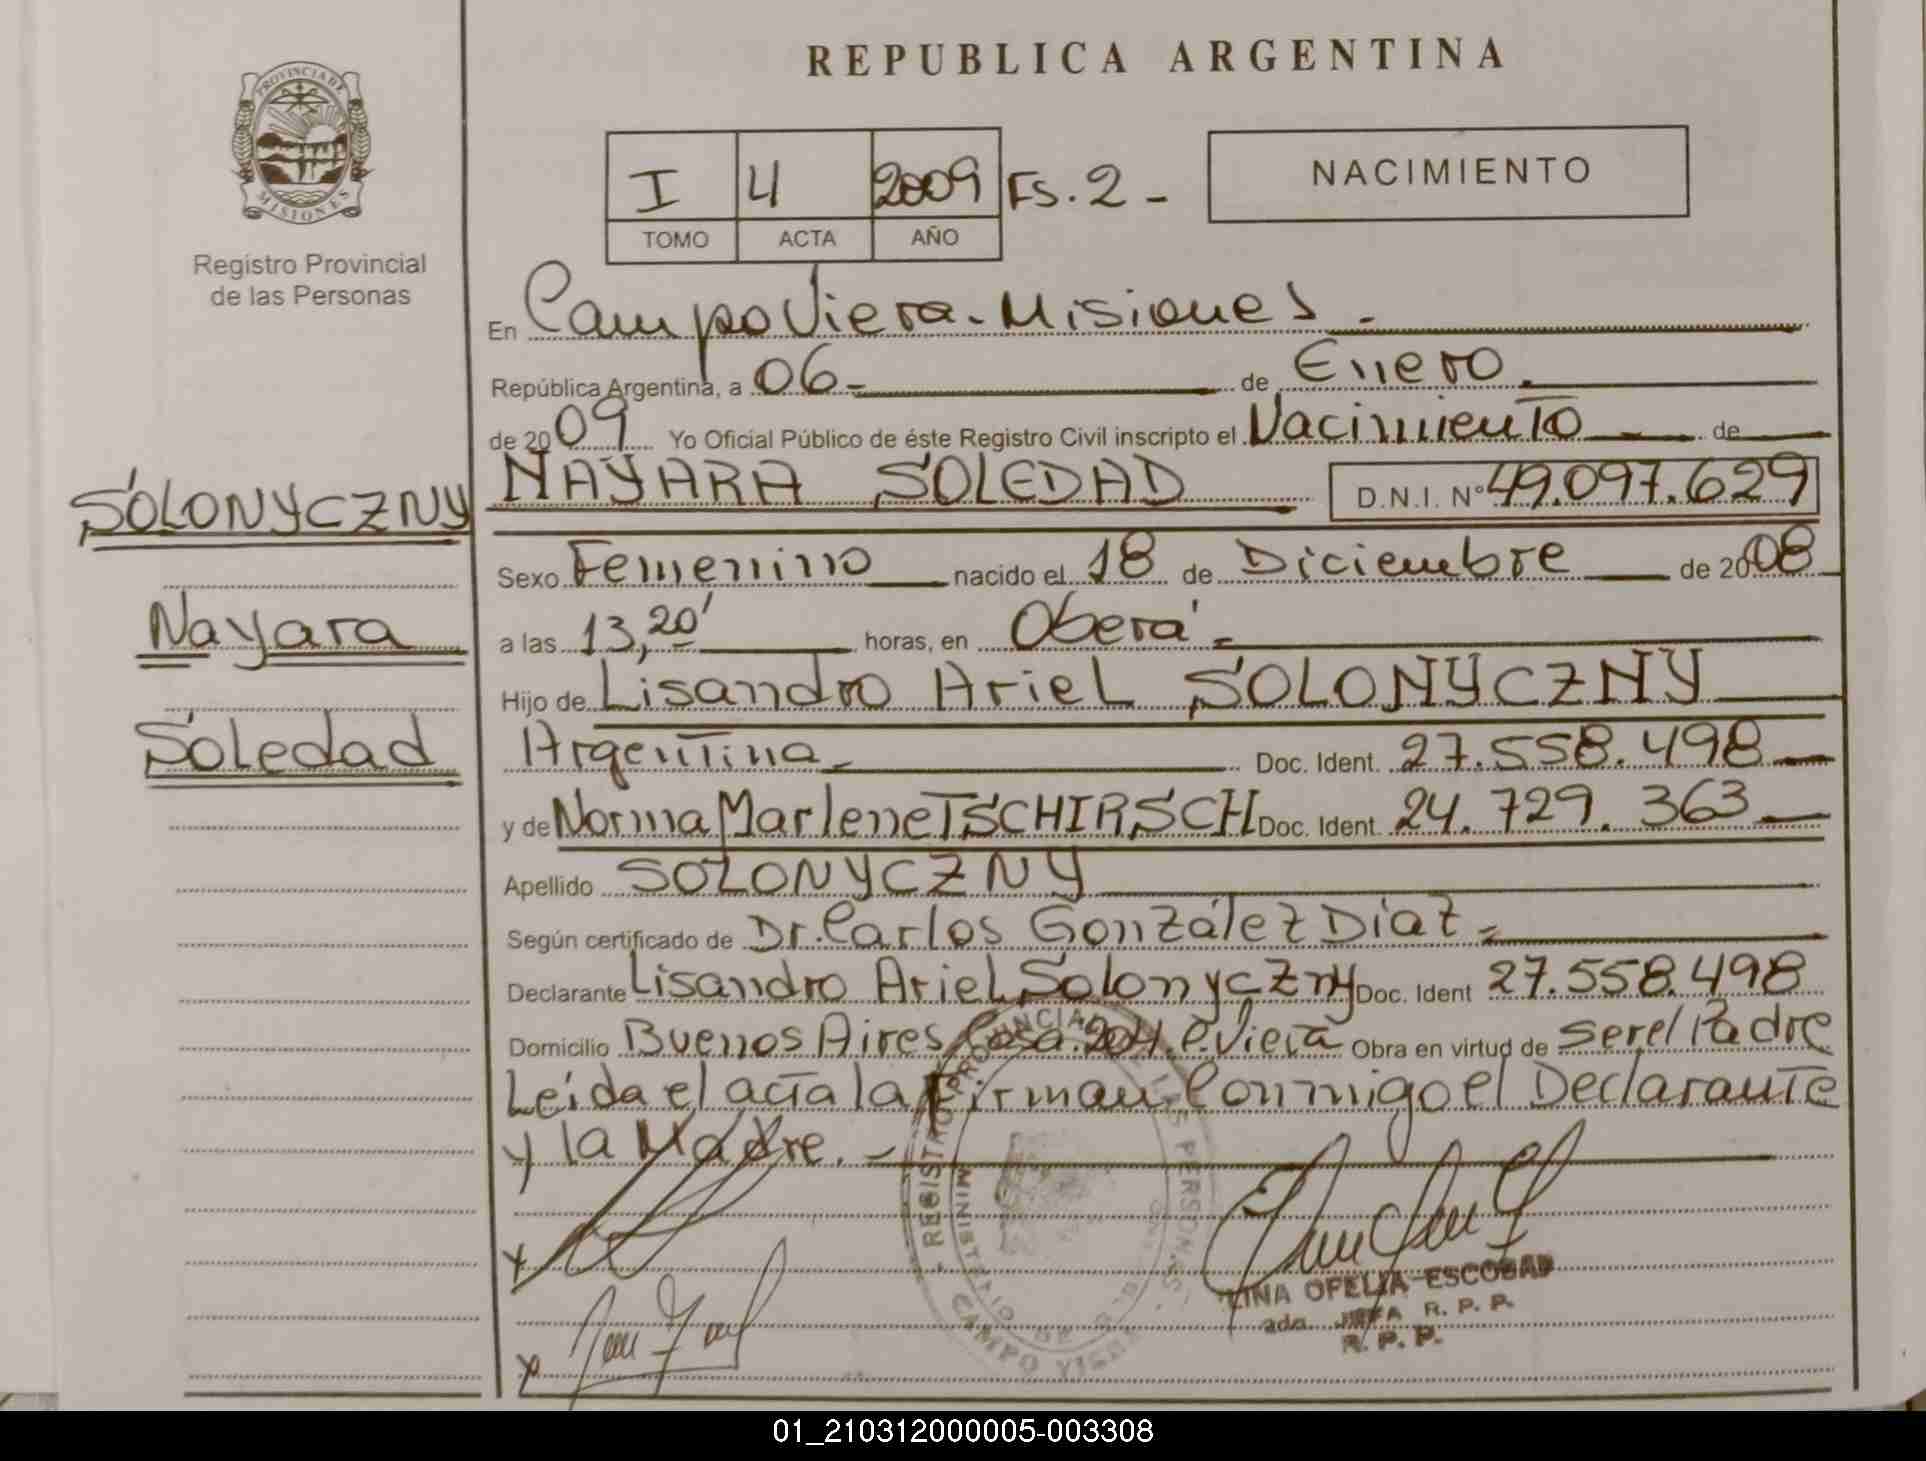 REPUBLICA ARGENTINA
PROVINCIA DE
MISIONES
Registro Provincial
de las Personas
I 4 2009 FS. 2 -
TOMO ACTA AÑO
NACIMIENTO
En Campo Viera - Misiones. -
República Argentina, a 06 - de Enero.
de 2009 Yo Oficial Público de éste Registro Civil inscripto el Nacimiento de
SOLONYCZNY
NAYARA SOLEDAD D.N.I. Nº 49.097.629
Sexo Femenino nacido el 18 de Diciembre de 2008
Nayara
a las 13,20' horas, en Oberá -
Hijo de Lisandro Ariel SOLONYCZNY
Soledad
Argentina - Doc. Ident. 27.558.498
y de Norma Marlene TSCHIRSCH Doc. Ident. 24.729.363
Apellido SOLONYCZNY
Según certificado de Dr. Carlos González Díaz -
Declarante Lisandro Ariel Solonyczny Doc. Ident 27.558.498
Domicilio Buenos Aires Casa 204 C. Viera Obra en virtud de ser el Padre
Leída el acta la Firman Conmigo el Declarante
y la Madre. -
REGISTRO PROVINCIAL DE LAS PERSONAS
CAMPO VIERA
OFELIA ESCOBAR
JEFA R. P. P.
R. P. P.
01_210312000005-003308